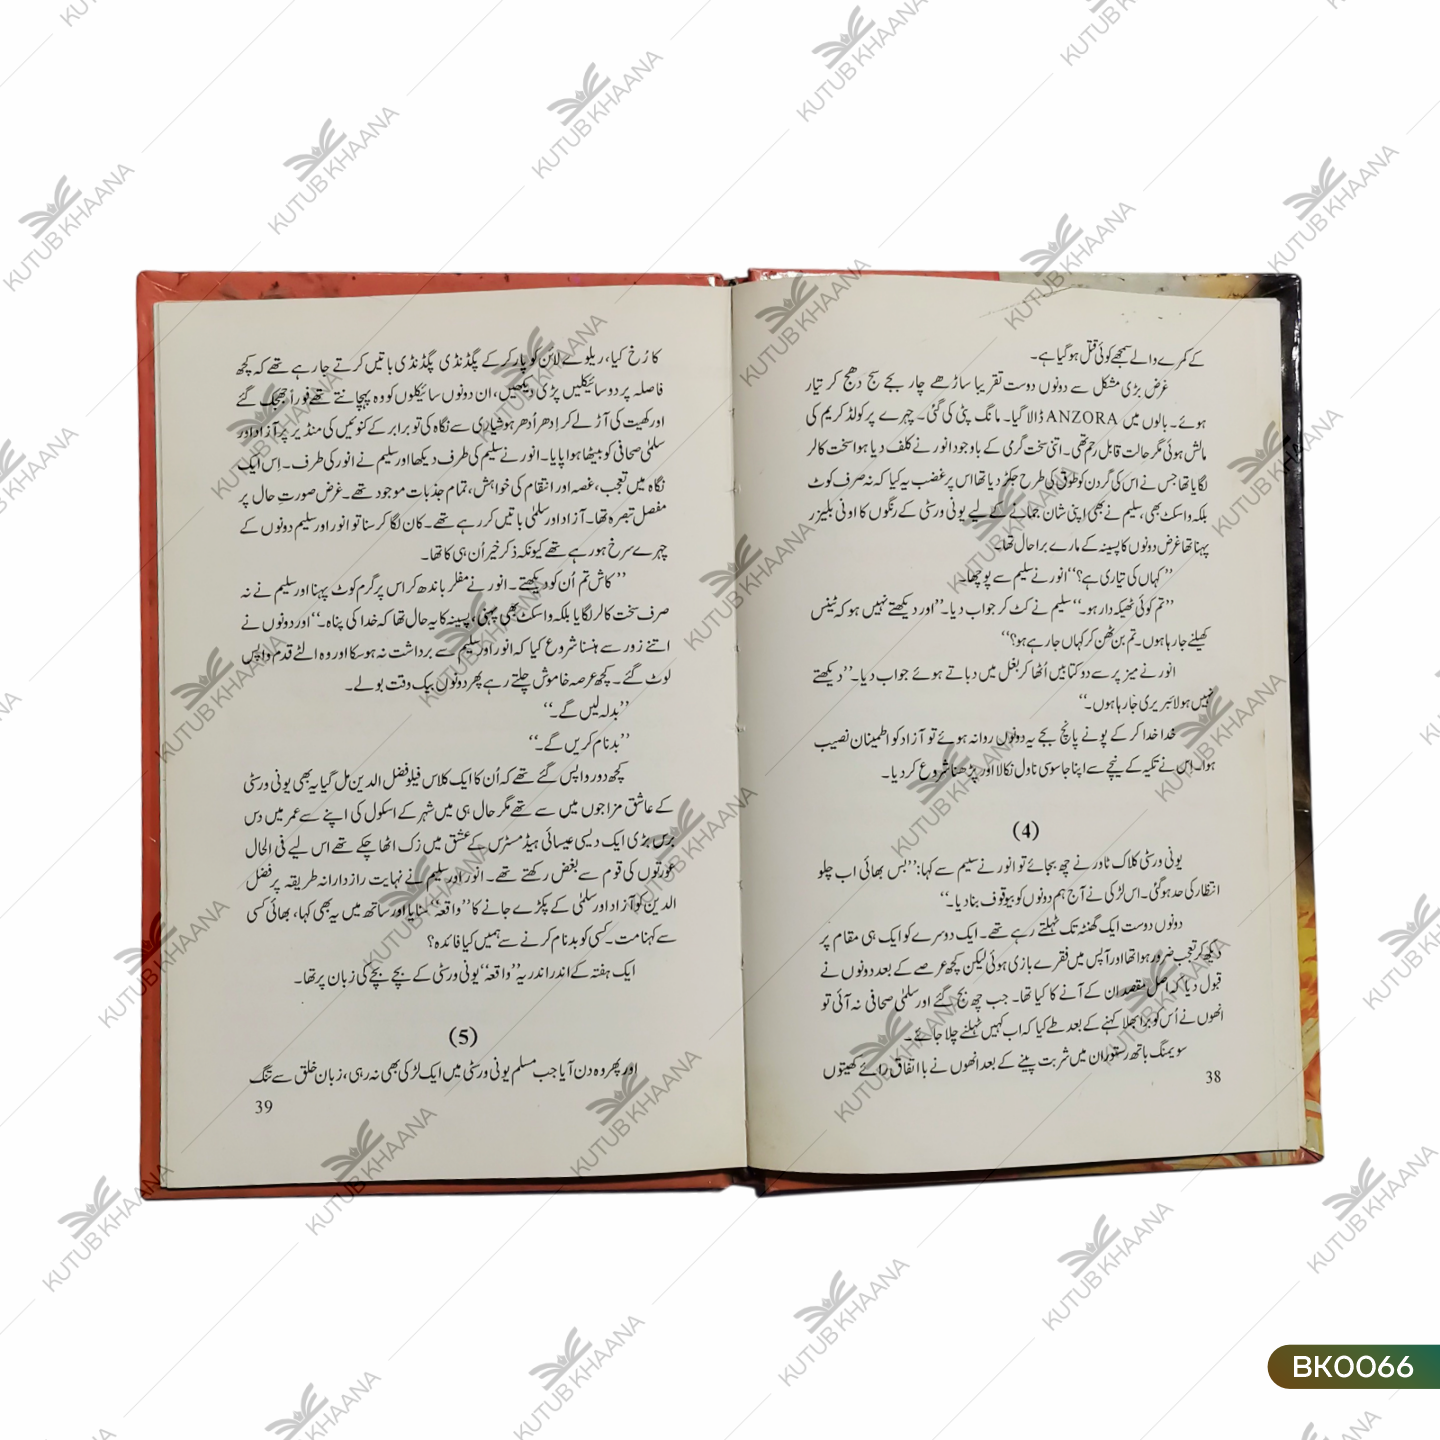 کے کمرے والے سمجھے کوئی قتل ہو گیا ہے۔
غرض بڑی مشکل سے دونوں دوست تقریبا ساڑھے چار بجے سج دھج کر تیار
ہوئے۔ بالوں میں ANZORA ڈالا گیا۔ مانگ پٹی کی گئی۔ چہرے پر کولڈ کریم کی
مالش ہوئی مگر حالت قابل رحم تھی۔ اتنی سخت گرمی کے باوجود انور نے کلف دیا ہوا سخت کالر
لگایا تھا جس نے اس کی گردن کو طوق کی طرح جکڑ دیا تھا اس پر غضب یہ کیا کہ نہ صرف کوٹ
بلکہ واسکٹ بھی، سلیم نے بھی اپنی شان جمانے کے لیے یونی ورسٹی کے رنگوں کا اونی بلیزر
پہنا تھا غرض دونوں کا پسینہ کے مارے برا حال تھا۔
’’کہاں کی تیاری ہے؟‘‘ انور نے سلیم سے پوچھا۔
’’تم کوئی ٹھیکہ دار ہو۔‘‘ سلیم نے کٹ کر جواب دیا۔ ’’اور دیکھتے نہیں ہو کہ ٹینس
کھیلنے جا رہا ہوں۔ تم بن ٹھن کر کہاں جا رہے ہو؟‘‘
انور نے میز پر سے دو کتابیں اُٹھا کر بغل میں دباتے ہوئے جواب دیا۔ ’’دیکھتے
نہیں ہو لائبریری جا رہا ہوں۔‘‘
خدا خدا کر کے پونے پانچ بجے یہ دونوں روانہ ہوئے تو آزاد کو اطمینان نصیب
ہوا۔ اس نے تکیہ کے نیچے سے اپنا جاسوسی ناول نکالا اور پڑھنا شروع کر دیا۔
(4)
یونی ورسٹی کلاک ٹاور نے چھ بجائے تو انور نے سلیم سے کہا: ’’بس بھائی اب چلو
انتظار کی حد ہو گئی۔ اس لڑکی نے آج ہم دونوں کو بیوقوف بنا دیا۔‘‘
دونوں دوست ایک گھنٹہ تک ٹہلتے رہے تھے۔ ایک دوسرے کو ایک ہی مقام پر
دیکھ کر تعجب ضرور ہوا تھا اور آپس میں فقرے بازی ہوئی لیکن کچھ عرصے کے بعد دونوں نے
قبول دیا کہ اصل مقصد ان کے آنے کا کیا تھا۔ جب چھ بج گئے اور سلمٰی صحافی نہ آئی تو
انھوں نے اُس کو برا بھلا کہنے کے بعد طے کیا کہ اب کہیں ٹہلنے چلا جائے۔
سویمنگ باتھ رستوران میں شربت پینے کے بعد انھوں نے با اتفاق رائے کھیتوں
38
کا رُخ کیا، ریلوے لائن کو پار کر کے پگڈنڈی پگڈنڈی باتیں کرتے جا رہے تھے کہ کچھ
فاصلہ پر دو سائیکلیں پڑی دیکھیں، ان دونوں سائیکلوں کو وہ پہچانتے تھے فوراً جھجک گئے
اور کھیت کی آڑ لے کر اِدھر اُدھر ہوشیاری سے نگاہ کی تو برابر کے کنوئیں کی منڈیر پر آزاد اور
سلمٰی صحافی کو بیٹھا ہوا پایا۔ انور نے سلیم کی طرف دیکھا اور سلیم نے انور کی طرف۔ اِس ایک
نگاہ میں تعجب، غصہ اور انتقام کی خواہش، تمام جذبات موجود تھے۔ غرض صورتِ حال پر
مفصل تبصرہ تھا۔ آزاد اور سلمٰی باتیں کر رہے تھے۔ کان لگا کر سنا تو انور اور سلیم دونوں کے
چہرے سرخ ہو رہے تھے کیونکہ ذکر خیر اُن ہی کا تھا۔
’’کاش تم اُن کو دیکھتے۔ انور نے مفلر باندھ کر اس پر گرم کوٹ پہنا اور سلیم نے نہ
صرف سخت کالر لگایا بلکہ واسکٹ بھی پہنی، پسینہ کا یہ حال تھا کہ خدا کی پناہ۔‘‘ اور دونوں نے
اتنے زور سے ہنسنا شروع کیا کہ انور اور سلیم سے برداشت نہ ہو سکا اور وہ الٹے قدم واپس
لوٹ گئے۔ کچھ عرصہ خاموش چلتے رہے پھر دونوں بیک وقت بولے۔
’’بدلہ لیں گے۔‘‘
’’بدنام کریں گے۔‘‘
کچھ دور واپس گئے تھے کہ اُن کا ایک کلاس فیلو فضل الدین مل گیا یہ بھی یونی ورسٹی
کے عاشق مزاجوں میں سے تھے مگر حال ہی میں شہر کے اسکول کی اپنے سے عمر میں دس
برس بڑی ایک دیسی عیسائی ہیڈ مسٹرس کے عشق میں زک اٹھا چکے تھے اس لیے فی الحال
عورتوں کی قوم سے بغض رکھتے تھے۔ انور اور سلیم نے نہایت رازدارانہ طریقہ پر فضل
الدین کو آزاد اور سلمٰی کے پکڑے جانے کا ’’واقعہ‘‘ سنایا اور ساتھ میں یہ بھی کہا، بھائی کسی
سے کہنا مت۔ کسی کو بدنام کرنے سے ہمیں کیا فائدہ؟
ایک ہفتہ کے اندر اندر یہ ’’واقعہ‘‘ یونی ورسٹی کے بچے بچے کی زبان پر تھا۔
(5)
اور پھر وہ دن آیا جب مسلم یونی ورسٹی میں ایک لڑکی بھی نہ رہی، زبان خلق سے تنگ
39
KUTUB KHAANA
BK0066